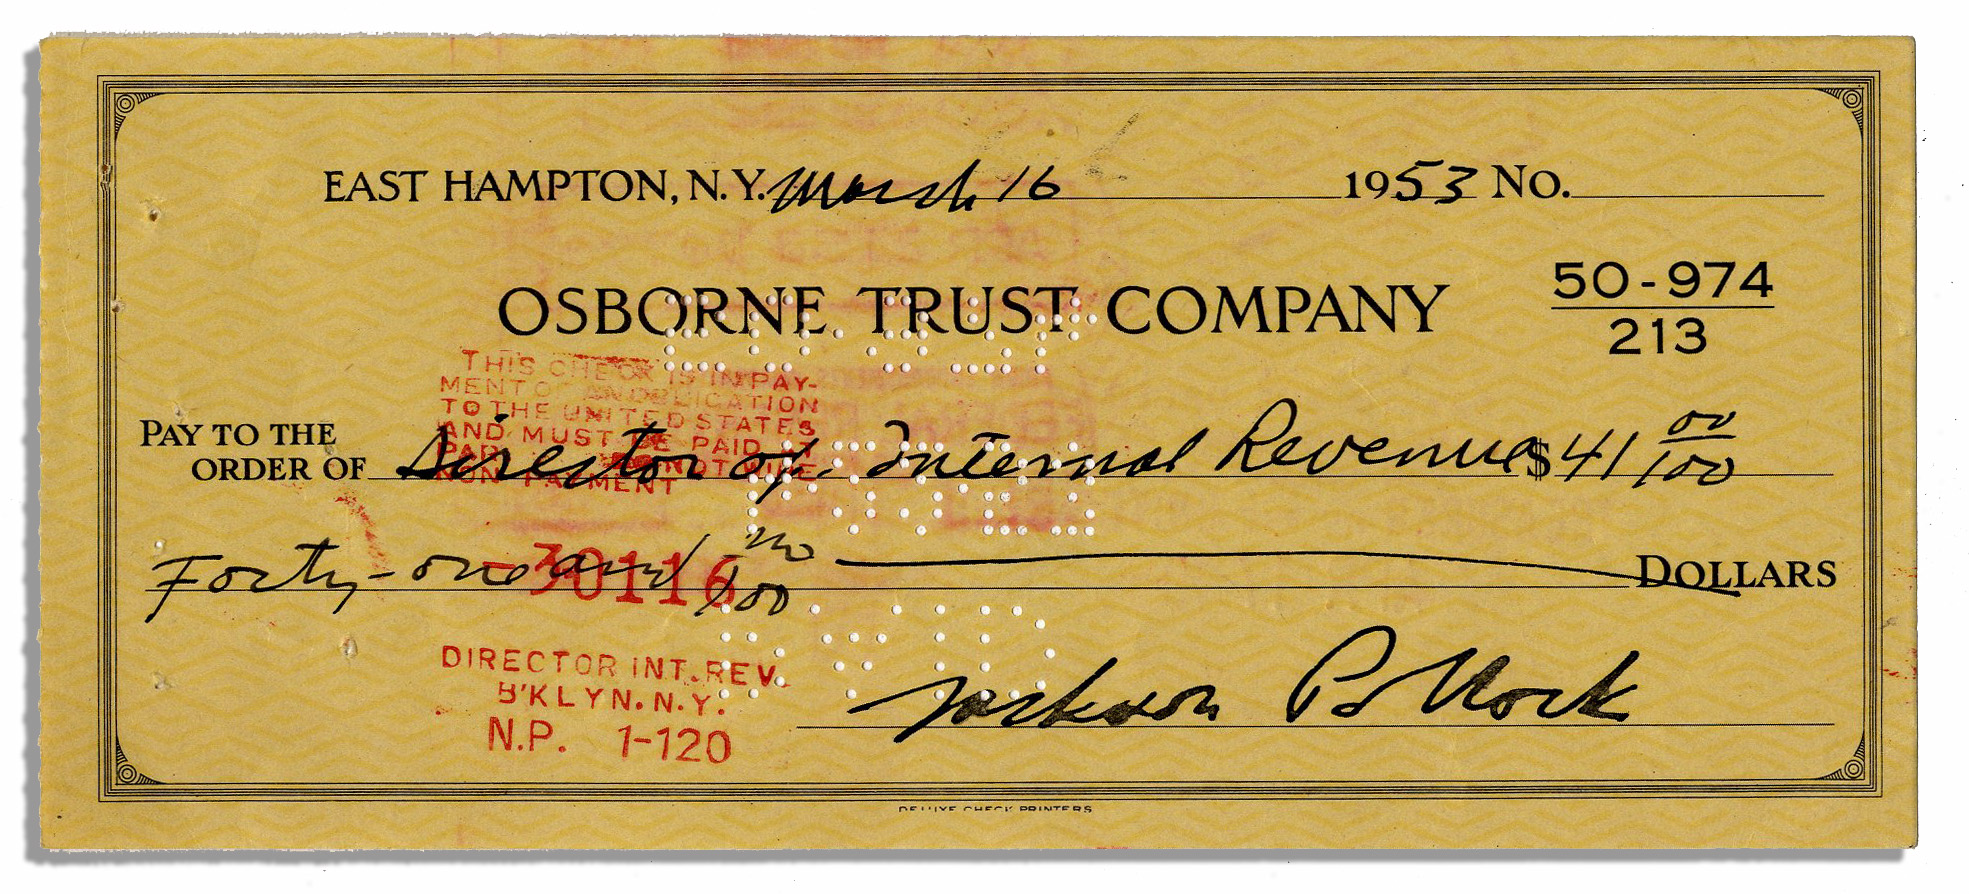 EAST HAMPTON, N.Y. March 16 1953 No.
OSBORNE TRUST COMPANY
50-974
213
THIS CHECK IS IN PAY-
MENT OF AN OBLIGATION
TO THE UNITED STATES
AND MUST BE PAID AT
PAR. DO NOT WIRE
NON-PAYMENT
PAY TO THE
ORDER OF Director of Internal Revenue $41 00/100
Forty-one and no/100 DOLLARS
30116
DIRECTOR INT. REV.
B'KLYN. N.Y.
N.P. 1-120
Jackson Pollock
DELUXE CHECK PRINTERS